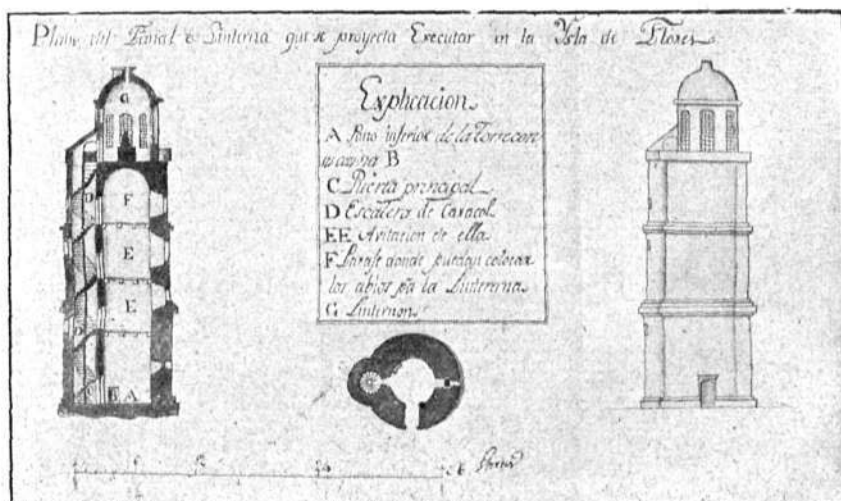 Plano del Fanal o Linterna que se proyecta Executar en la Ysla de Flores
Explicacion
A Piso inferior de la Torre con
B
C Puerta principal
D Escalera de Caracol
EE Avitacion de ella
F Parage donde puedan colocar
los abios pa la Linterna
G Linternon
G
F
D
E
E
D
B A